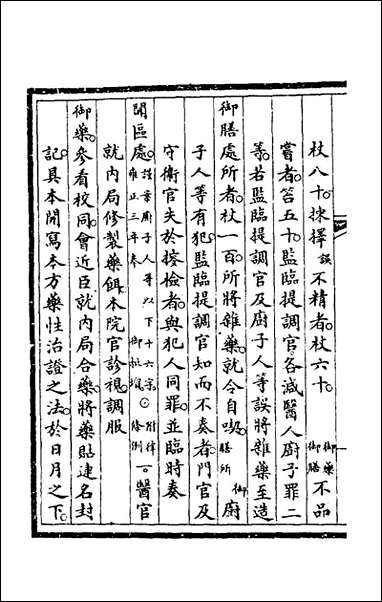 杖八十揀擇誤不精者杖六十御藥御膳不品
嘗者笞五十監臨提調官各減醫人廚子罪二
等若監臨提調官及廚子人等誤將雜藥至造
御膳處所者杖一百所將雜藥就令自喫御膳所廚
子人等有犯監臨提調官知而不奏者門官及
守衛官失於搜檢者與犯人同罪並臨時奏
聞區處謹案廚子人等以下十六字雍正三年奏附律條例一醫官
就內局修製藥餌本院官診視調服
御藥參看校同會近臣就內局合藥將藥貼連名封
記具本開寫本方藥性治證之法於日月之下